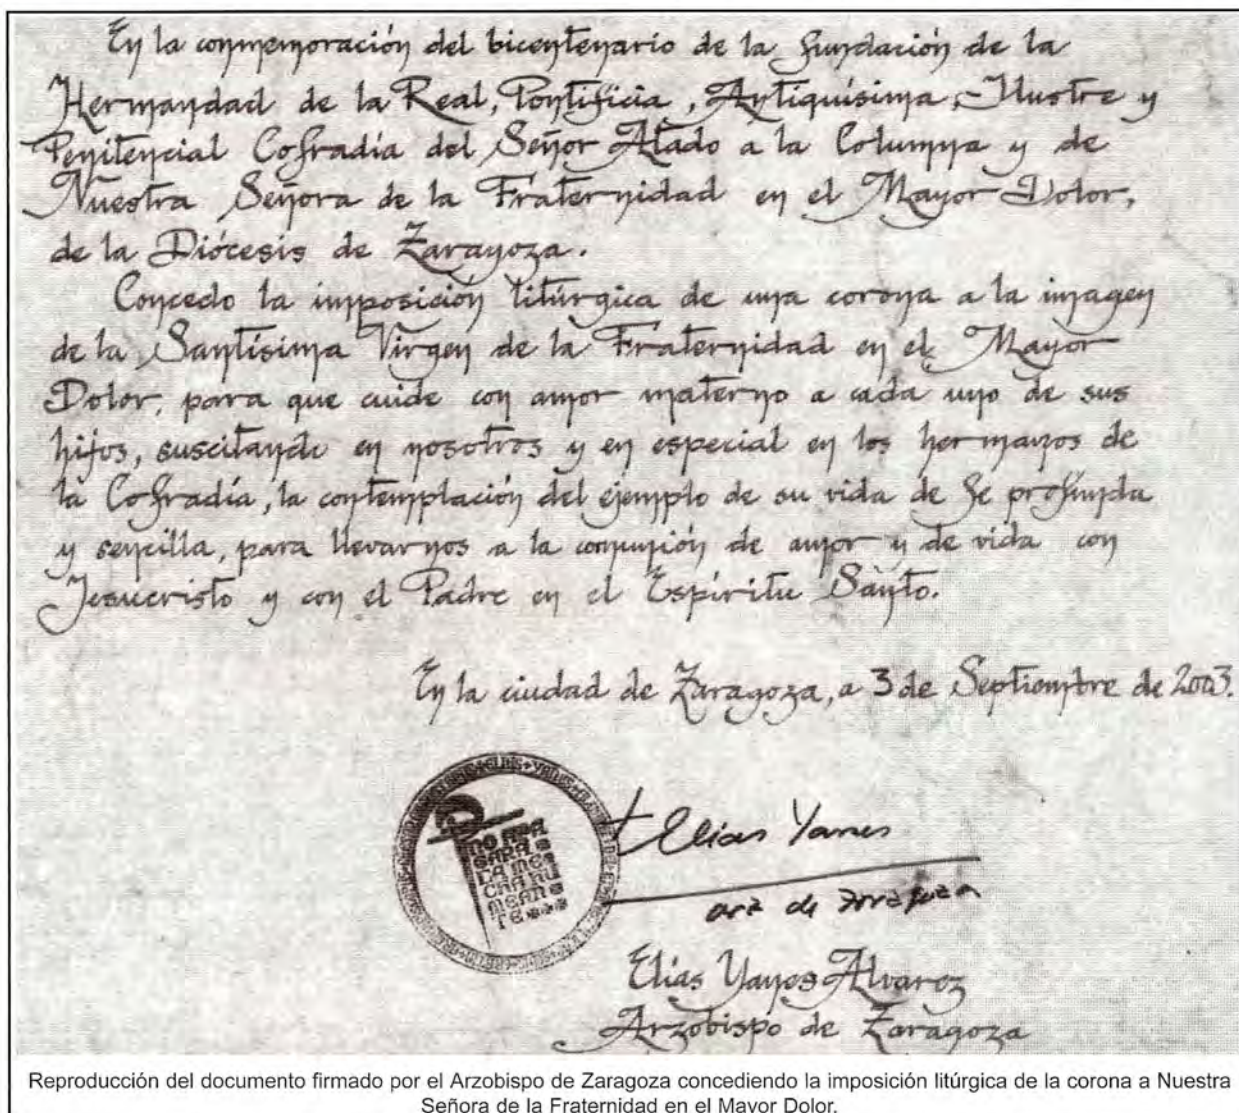 En la conmemoración del bicentenario de la fundación de la
Hermandad de la Real, Pontificia, Antiquísima, Ilustre y
Penitencial Cofradía del Señor Atado a la Columna y de
Nuestra Señora de la Fraternidad en el Mayor Dolor,
de la Diócesis de Zaragoza.
Concedo la imposición litúrgica de una corona a la imagen
de la Santísima Virgen de la Fraternidad en el Mayor
Dolor, para que cuide con amor materno a cada uno de sus
hijos, suscitando en nosotros y en especial en los hermanos de
la Cofradía, la contemplación del ejemplo de su vida de fe profunda
y sencilla, para llevarnos a la comunión de amor y de vida con
Jesucristo y con el Padre en el Espíritu Santo.
En la ciudad de Zaragoza, a 3 de Septiembre de 2003.
NO APA
GARA
LA ME
CHA HU
MEAN
TE
Elías Yanes
arz de Zaragoza
Elías Yanes Alvarez
Arzobispo de Zaragoza
Reproducción del documento firmado por el Arzobispo de Zaragoza concediendo la imposición litúrgica de la corona a Nuestra
Señora de la Fraternidad en el Mayor Dolor.